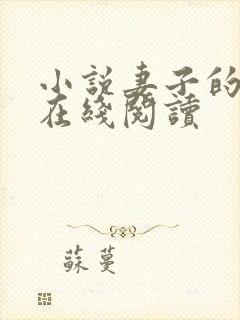 小说妻子的
在綫閱讀
蘇蔓